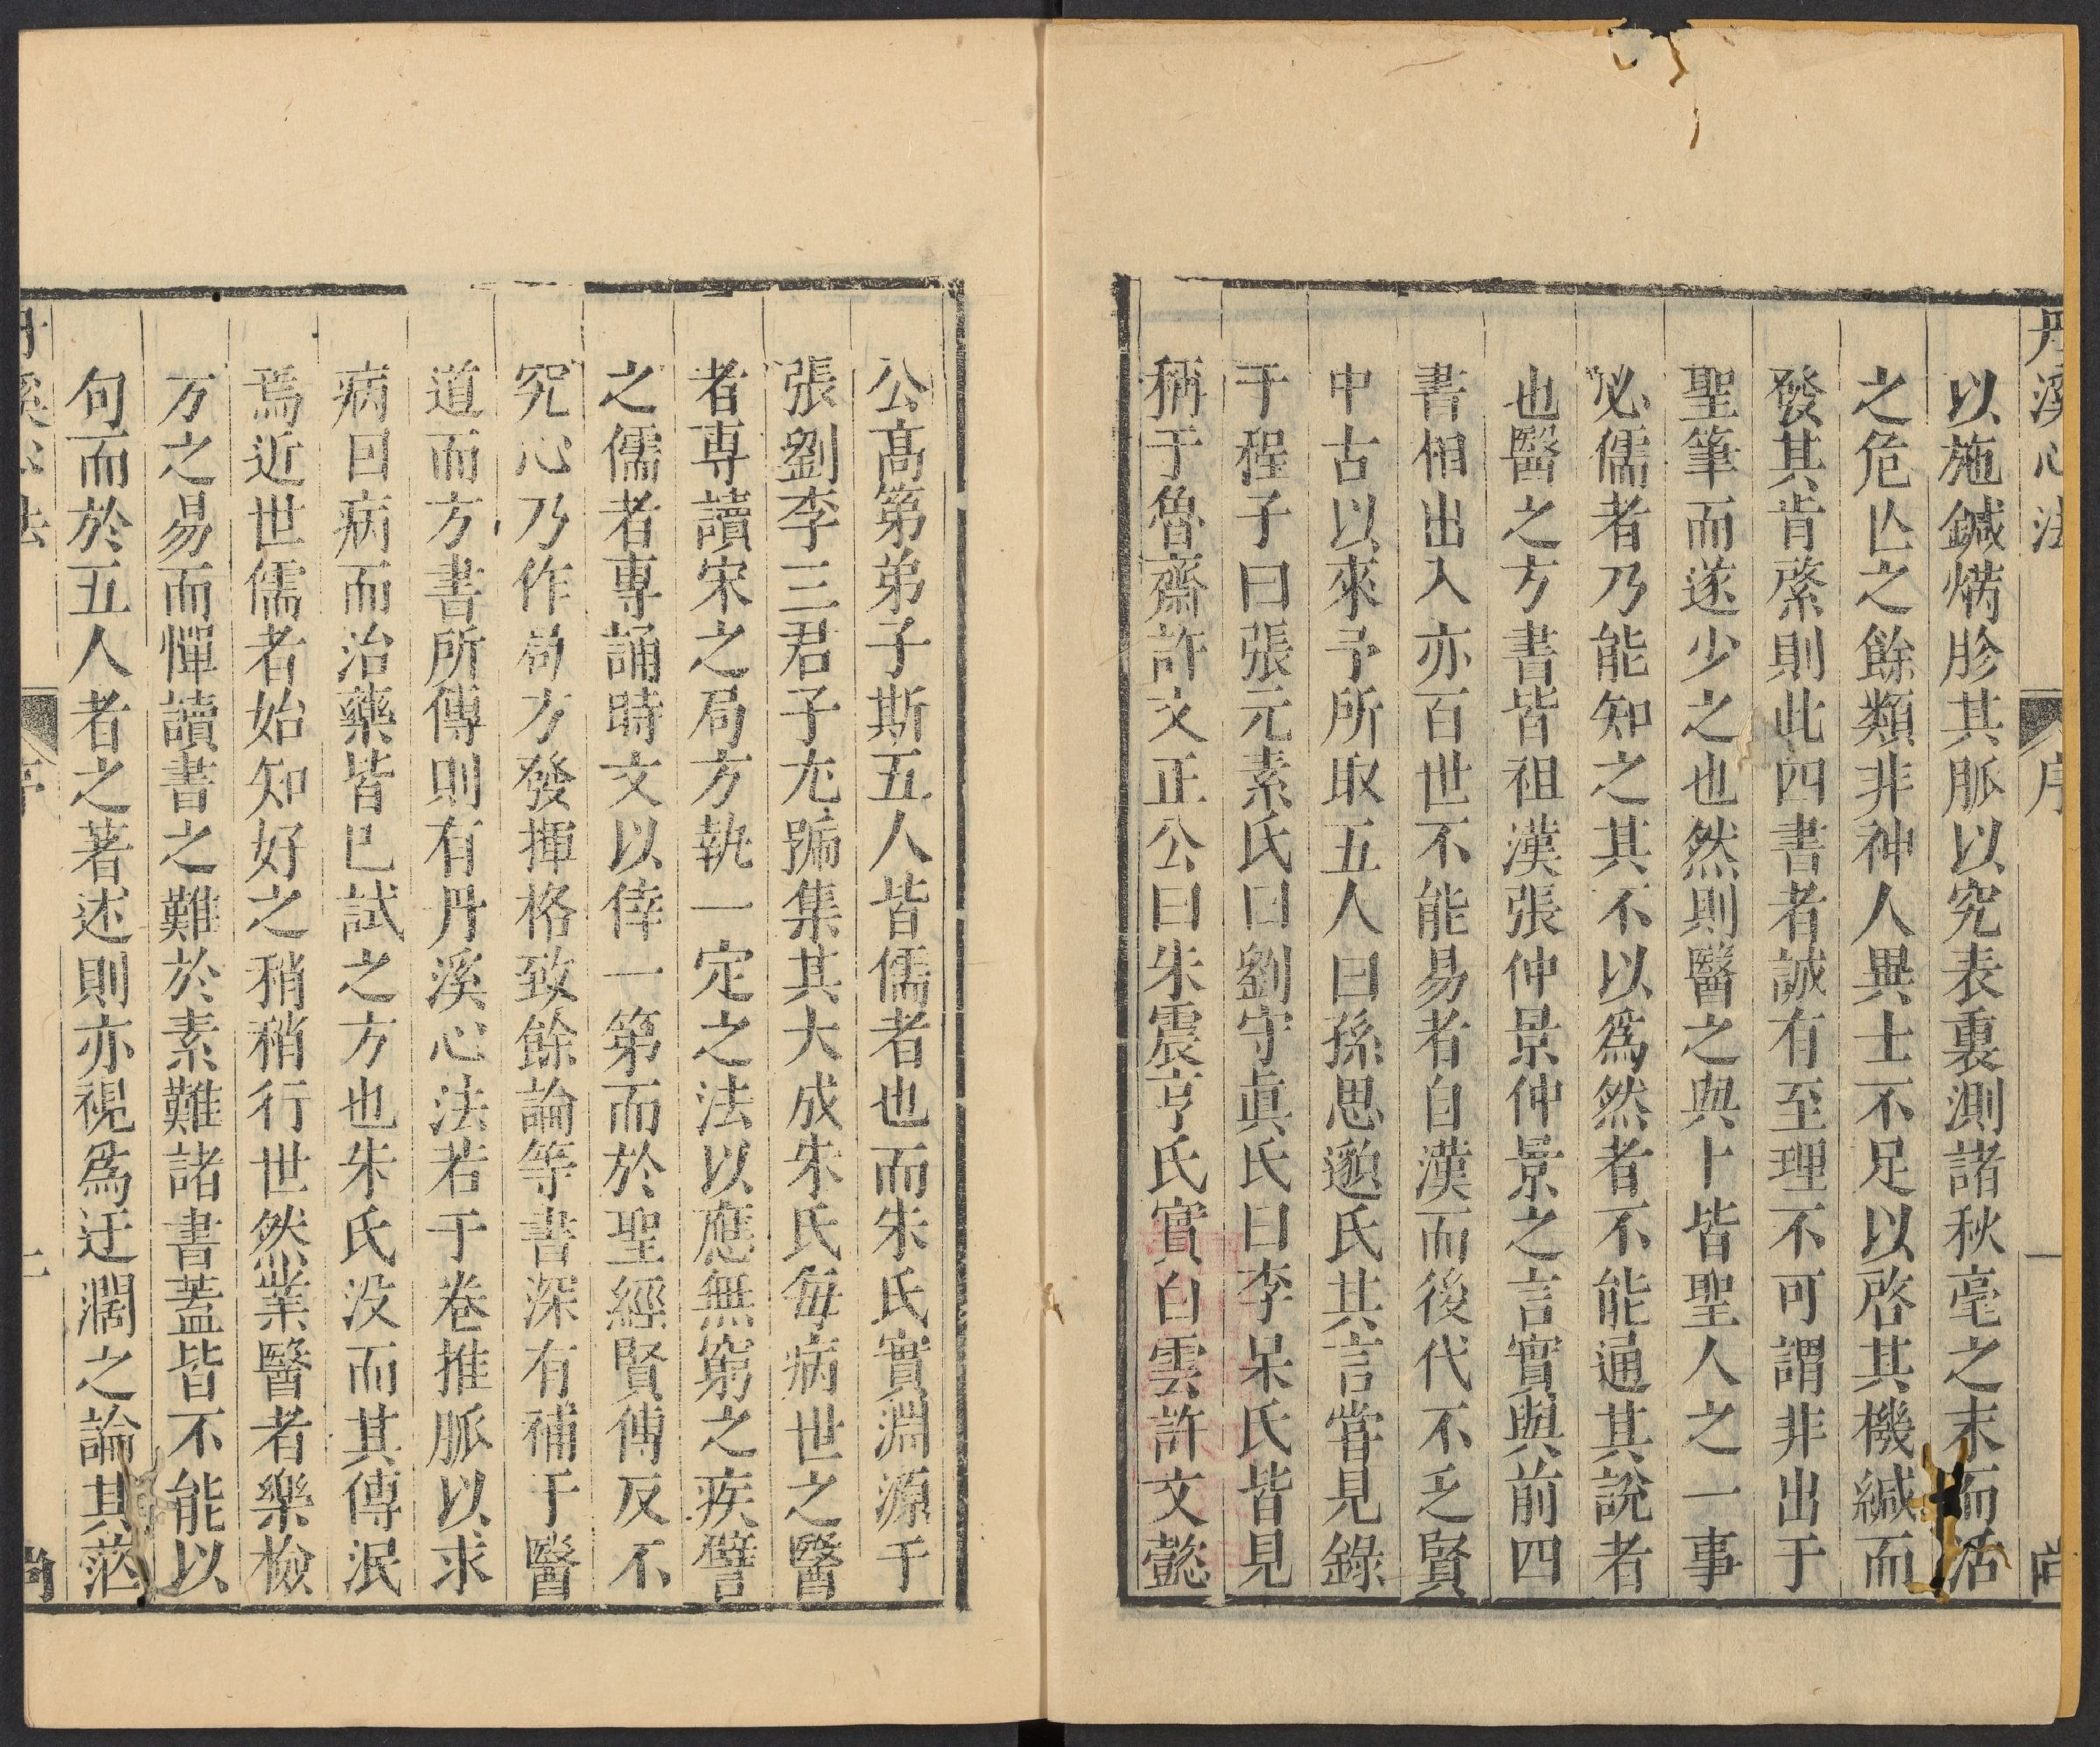 丹溪心法 序 一 尚
以施鍼焫胗其脈以究表裏測諸秋毫之末而活
之危亾之餘類非神人異士不足以啓其機緘而
發其肯綮則此四書者誠有至理不可謂非出于
聖筆而遂少之也然則醫之與卜皆聖人之一事
必儒者乃能知之其不以爲然者不能通其說者
也醫之方書皆祖漢張仲景仲景之言實與前四
書相出入亦百世不能易者自漢而後代不乏賢
中古以來予所取五人曰孫思邈氏其言嘗見錄
于程子曰張元素氏曰劉守眞氏曰李杲氏皆見
稱于魯齋許文正公曰朱震亨氏實白雲許文懿
公高第弟子斯五人皆儒者也而朱氏實淵源于
張劉李三君子尢號集其大成朱氏每病世之醫
者專讀宋之局方執一定之法以應無窮之疾譬
之儒者專誦時文以倖一第而於聖經賢傳反不
究心乃作局方發揮格致餘論等書深有補于醫
道而方書所傳則有丹溪心法若干卷推脈以求
病因病而治藥皆已試之方也朱氏没而其傳泯
焉近世儒者始知好之稍稍行世然業醫者樂檢
方之易而憚讀書之難於素難諸書蓋皆不能以
句而於五人者之著述則亦視爲迂濶之論其茫
丹溪心法 序 二 尚